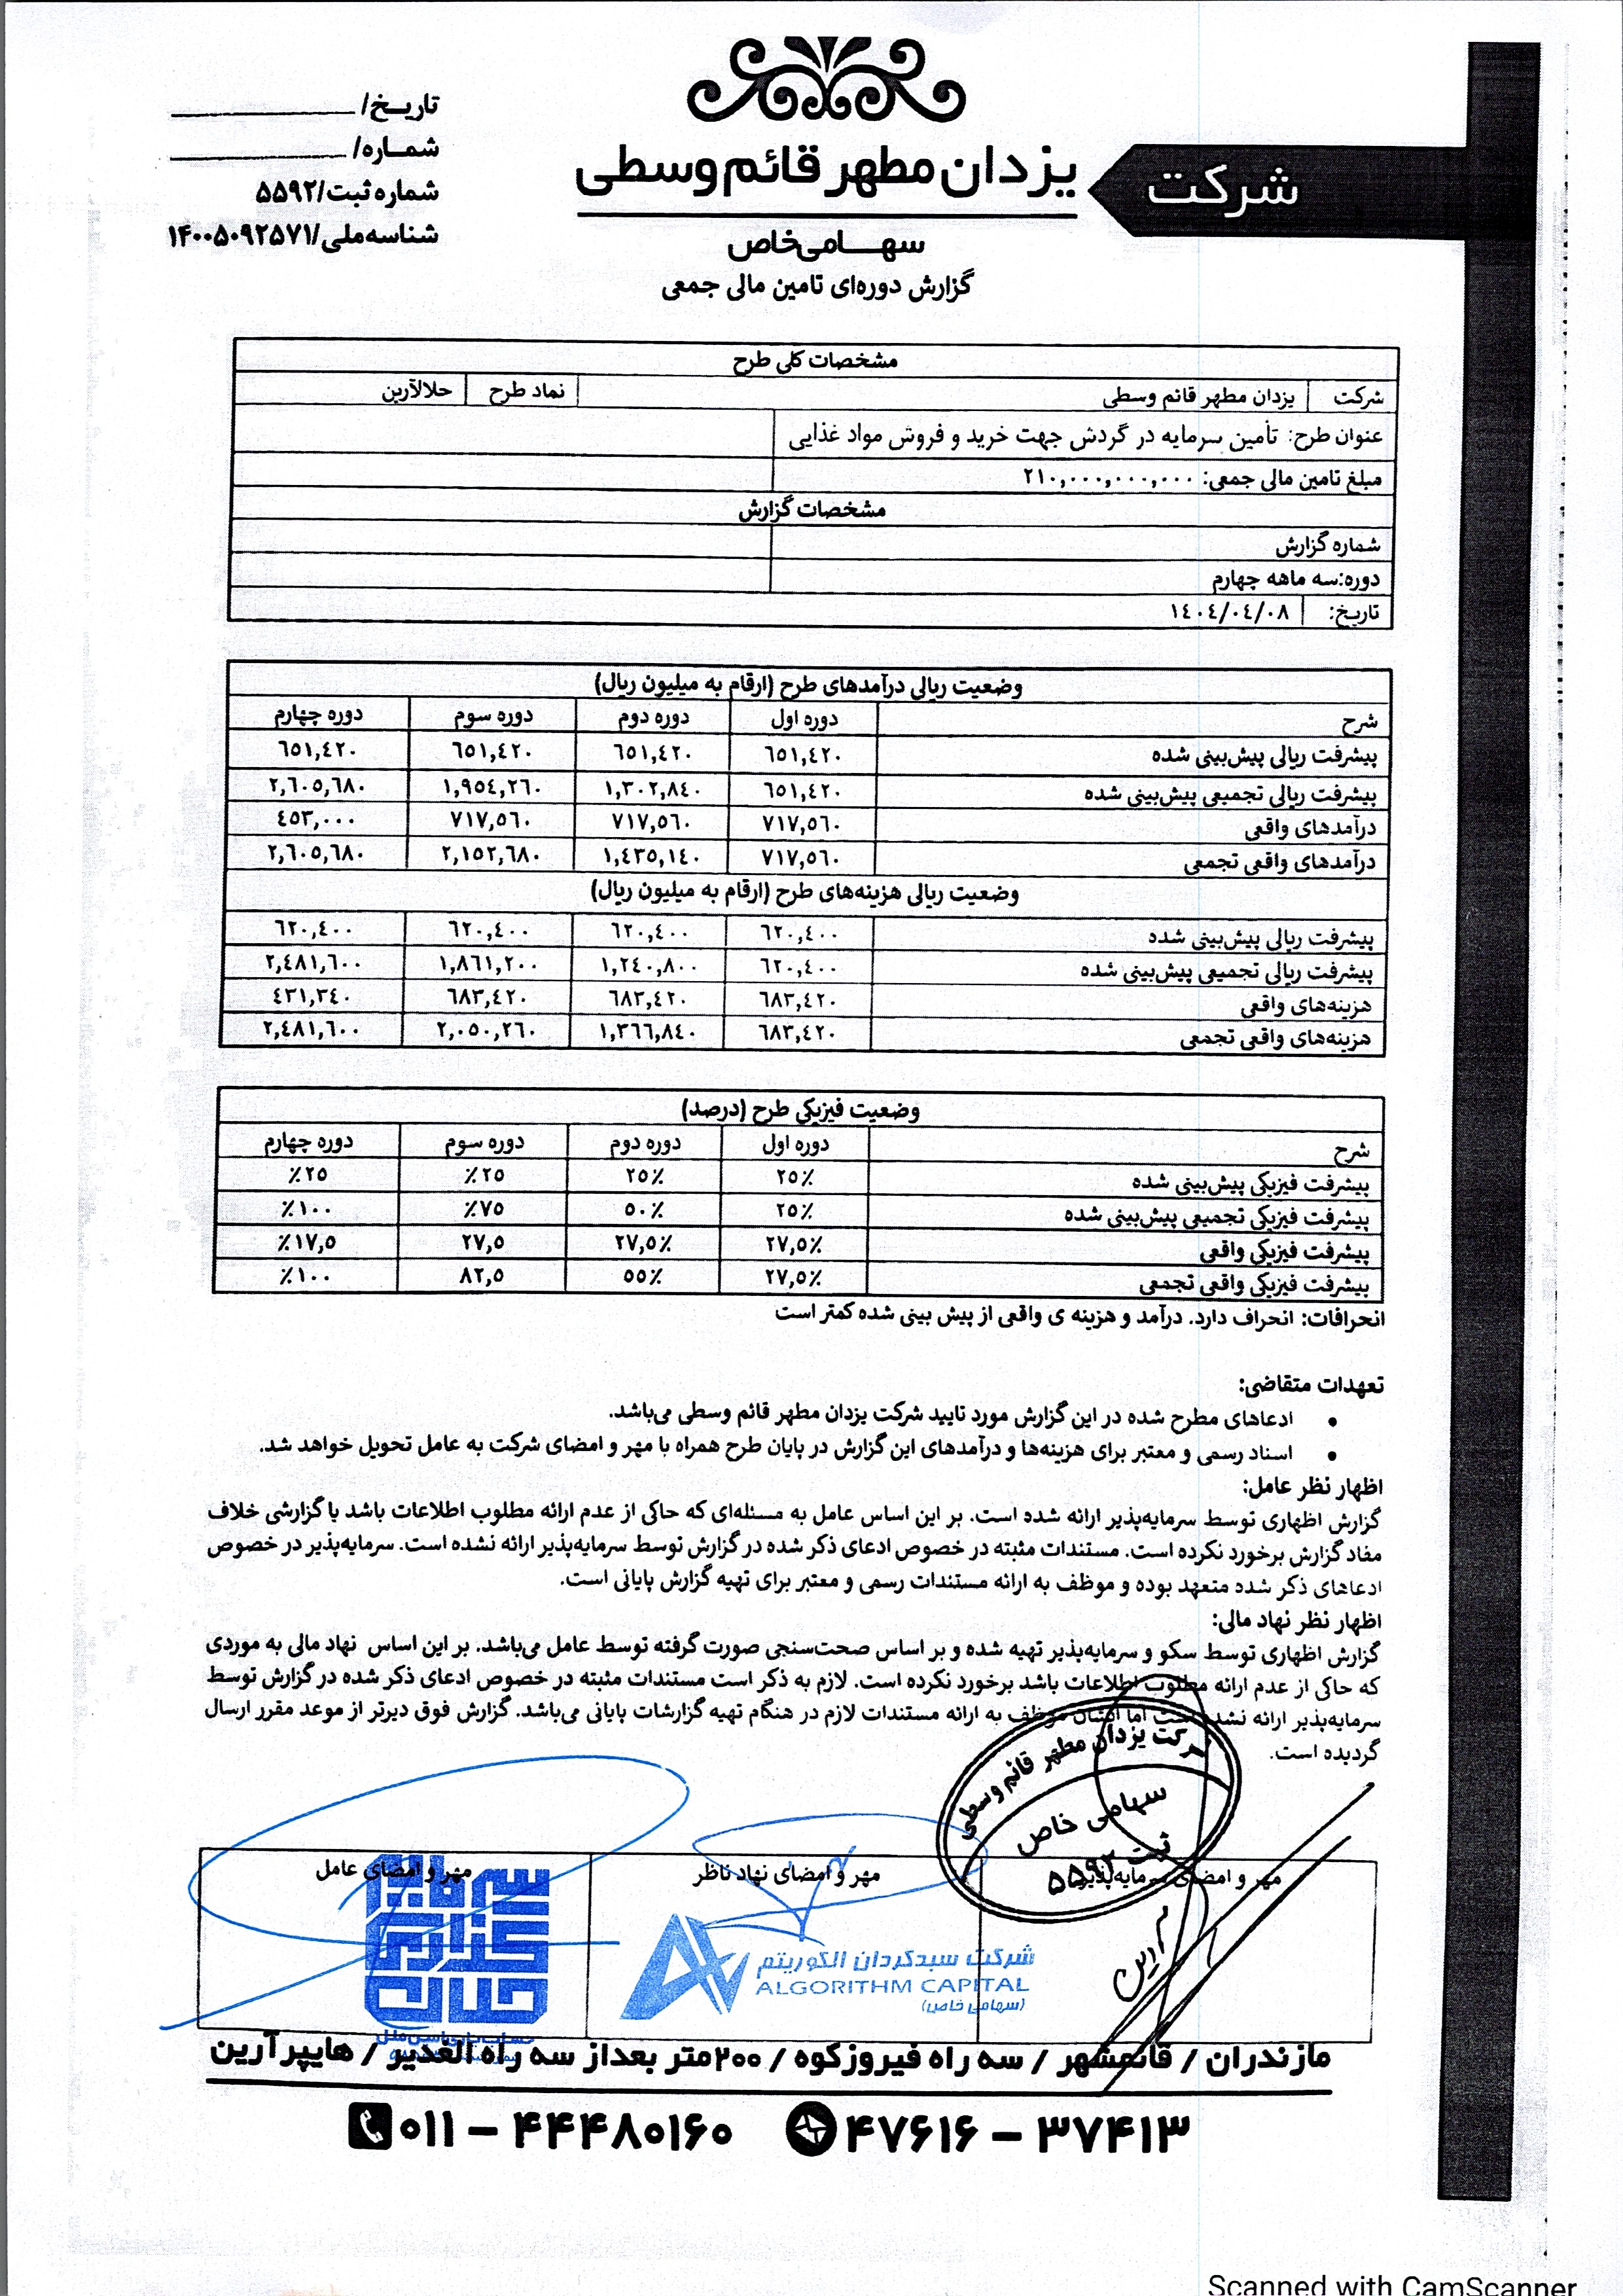 تاریخ/
شماره/
شماره ثبت/۵۵۹۲
شناسه ملی/۱۴۰۰۵۰۹۲۵۷۱
شرکت
یزدان مطهر قائم وسطی
سهامی خاص
گزارش دوره‌ای تامین مالی جمعی
مشخصات کلی طرح
شرکت یزدان مطهر قائم وسطی نماد طرح حلالآرین
عنوان طرح: تأمین سرمایه در گردش جهت خرید و فروش مواد غذایی
مبلغ تامین مالی جمعی: ۲۱۰,۰۰۰,۰۰۰,۰۰۰
مشخصات گزارش
شماره گزارش
دوره:سه ماهه چهارم
تاریخ: ١٤٠٤/٠٤/٠٨
وضعیت ریالی درآمدهای طرح (ارقام به میلیون ریال)
شرح دوره اول دوره دوم دوره سوم دوره چهارم
پیشرفت ریالی پیش‌بینی شده ٦٥١,٤٢٠ ٦٥١,٤٢٠ ٦٥١,٤٢٠ ٦٥١,٤٢٠
پیشرفت ریالی تجمیعی پیش‌بینی شده ٦٥١,٤٢٠ ١,٣٠٢,٨٤٠ ١,٩٥٤,٢٦٠ ٢,٦٠٥,٦٨٠
درآمدهای واقعی ٧١٧,٥٦٠ ٧١٧,٥٦٠ ٧١٧,٥٦٠ ٤٥٣,٠٠٠
درآمدهای واقعی تجمعی ٧١٧,٥٦٠ ١,٤٣٥,١٤٠ ٢,١٥٢,٦٨٠ ٢,٦٠٥,٦٨٠
وضعیت ریالی هزینه‌های طرح (ارقام به میلیون ریال)
پیشرفت ریالی پیش‌بینی شده ٦٢٠,٤٠٠ ٦٢٠,٤٠٠ ٦٢٠,٤٠٠ ٦٢٠,٤٠٠
پیشرفت ریالی تجمیعی پیش‌بینی شده ٦٢٠,٤٠٠ ١,٢٤٠,٨٠٠ ١,٨٦١,٢٠٠ ٢,٤٨١,٦٠٠
هزینه‌های واقعی ٦٨٣,٤٢٠ ٦٨٣,٤٢٠ ٦٨٣,٤٢٠ ٤٣١,٣٤٠
هزینه‌های واقعی تجمعی ٦٨٣,٤٢٠ ١,٣٦٦,٨٤٠ ٢,٠٥٠,٢٦٠ ٢,٤٨١,٦٠٠
وضعیت فیزیکی طرح (درصد)
شرح دوره اول دوره دوم دوره سوم دوره چهارم
پیشرفت فیزیکی پیش‌بینی شده ٢٥٪ ٢٥٪ ٪٢٥ ٪٢٥
پیشرفت فیزیکی تجمیعی پیش‌بینی شده ٢٥٪ ٥٠٪ ٪٧٥ ٪١٠٠
پیشرفت فیزیکی واقعی ٢٧,٥٪ ٢٧,٥٪ ٢٧,٥ ٪١٧,٥
پیشرفت فیزیکی واقعی تجمعی ٢٧,٥٪ ٥٥٪ ٨٢,٥ ٪١٠٠
انحرافات: انحراف دارد. درآمد و هزینه ی واقعی از پیش بینی شده کمتر است
تعهدات متقاضی:
• ادعاهای مطرح شده در این گزارش مورد تایید شرکت یزدان مطهر قائم وسطی می‌باشد.
• اسناد رسمی و معتبر برای هزینه‌ها و درآمدهای این گزارش در پایان طرح همراه با مهر و امضای شرکت به عامل تحویل خواهد شد.
اظهار نظر عامل:
گزارش اظهاری توسط سرمایه‌پذیر ارائه شده است. بر این اساس عامل به مسئله‌ای که حاکی از عدم ارائه مطلوب اطلاعات باشد یا گزارشی خلاف
مفاد گزارش برخورد نکرده است. مستندات مثبته در خصوص ادعای ذکر شده در گزارش توسط سرمایه‌پذیر ارائه نشده است. سرمایه‌پذیر در خصوص
ادعاهای ذکر شده متعهد بوده و موظف به ارائه مستندات رسمی و معتبر برای تهیه گزارش پایانی است.
اظهار نظر نهاد مالی:
گزارش اظهاری توسط سکو و سرمایه‌پذیر تهیه شده و بر اساس صحت‌سنجی صورت گرفته توسط عامل می‌باشد. بر این اساس نهاد مالی به موردی
که حاکی از عدم ارائه مطلوب اطلاعات باشد برخورد نکرده است. لازم به ذکر است مستندات مثبته در خصوص ادعای ذکر شده در گزارش توسط
سرمایه‌پذیر ارائه نشده است اما ایشان موظف به ارائه مستندات لازم در هنگام تهیه گزارشات پایانی می‌باشد. گزارش فوق دیرتر از موعد مقرر ارسال
گردیده است.
شرکت یزدان مطهر قائم وسطی
سهامی خاص
ثبت ۵۵۹۲
مهر و امضای سرمایه‌پذیر مهر و امضای نهاد ناظر مهر و امضای عامل
شرکت سبدگردان الگوریتم
ALGORITHM CAPITAL
(سهامی خاص)
مازندران / قائمشهر / سه راه فیروزکوه / ۲۰۰متر بعداز سه راه الغدیر / هایپر آرین
۴۷۶۱۶ – ۳۷۴۱۳
۰۱۱ – ۴۴۴۸۰۱۶۰
Scanned with CamScanner